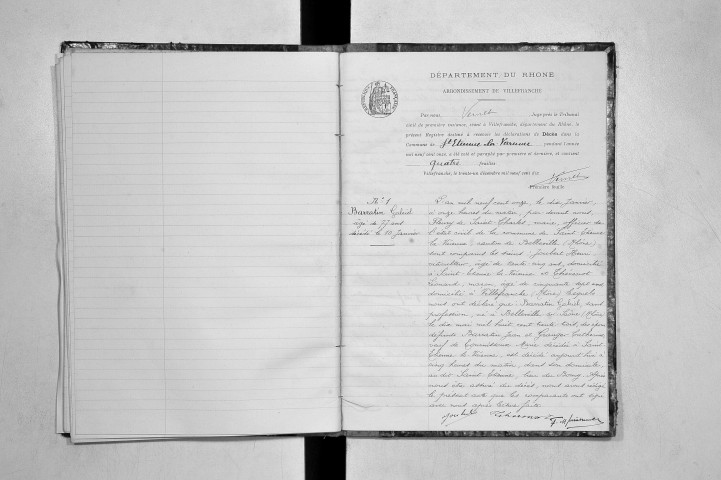 DÉPARTEMENT DU RHONE
ARRONDISSEMENT DE VILLEFRANCHE
Par nous, Juge près le Tribunal
civil de première instance, séant à Villefranche, département du Rhône, le
présent Registre destiné à recevoir les déclarations de Décès dans la
Commune de St Etienne la Varenne pendant l'année
mil neuf cent onze, a été coté et paraphé par première et dernière, et contient
quatre feuillets
Villefranche, le trente-un décembre mil neuf cent dix
Première feuille
N° 1
Barratin Gabriel
âgé de 77 ans
décédé le 10 Janvier
L'an mil neuf cent onze, le dix Janvier
à onze heures du matin, par devant nous
Fleury de Saint-Charles, maire, officier de
l'état civil de la commune de Saint Etienne
la Varenne canton de Belleville (Rhône),
sont comparus les sieurs Joubert Henri
âgé de trente cinq ans, domicilié
à Saint Etienne la Varenne et
Léonard, maçon, âgé de cinquante sept ans
domicilié à Villefranche (Rhône) lesquels
nous ont déclaré que Barratin Gabriel, sans
profession, né à Belleville sur Saône (Rhône)
le dix mai mil huit cent trente trois, des époux
défunts Barratin Jean et
veuf de Marie décédée à Saint
Etienne la Varenne, est décédé aujourd'hui à
cinq heures du matin, dans son domicile
au dit Saint Etienne, lieu du Bourg. Après
nous être assuré du décès, nous avons rédigé
le présent acte que les comparants ont signé
avec nous après lecture faite
Joubert